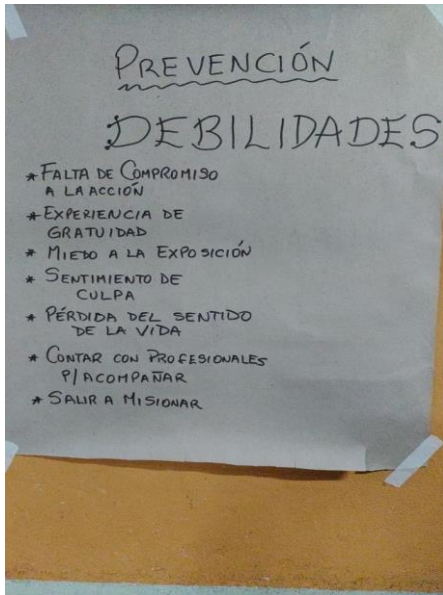 PREVENCIÓN
DEBILIDADES
* FALTA DE COMPROMISO
A LA ACCIÓN
* EXPERIENCIA DE
GRATUIDAD
* MIEDO A LA EXPOSICIÓN
* SENTIMIENTO DE
CULPA
* PÉRDIDA DEL SENTIDO
DE LA VIDA
* CONTAR CON PROFESIONALES
P/ ACOMPAÑAR
* SALIR A MISIONAR